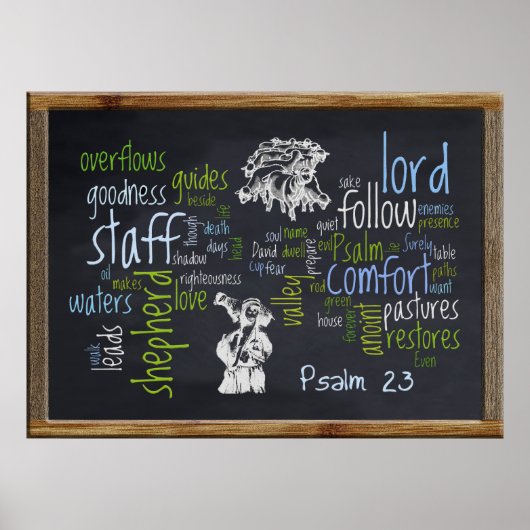 overflows
goodness
guides
beside
staff
though
death
life
days
shadow
head
oil
makes
righteousness
waters
shepherd
love
walk
leads
soul
name
David
dwell
cup
fear
valley
prepare
evil
quiet
sake
lord
follow
enemies
presence
Psalm
lie
Surely
table
comfort
paths
want
rod
green
house
forever
anoint
pastures
restores
Even
Psalm 23